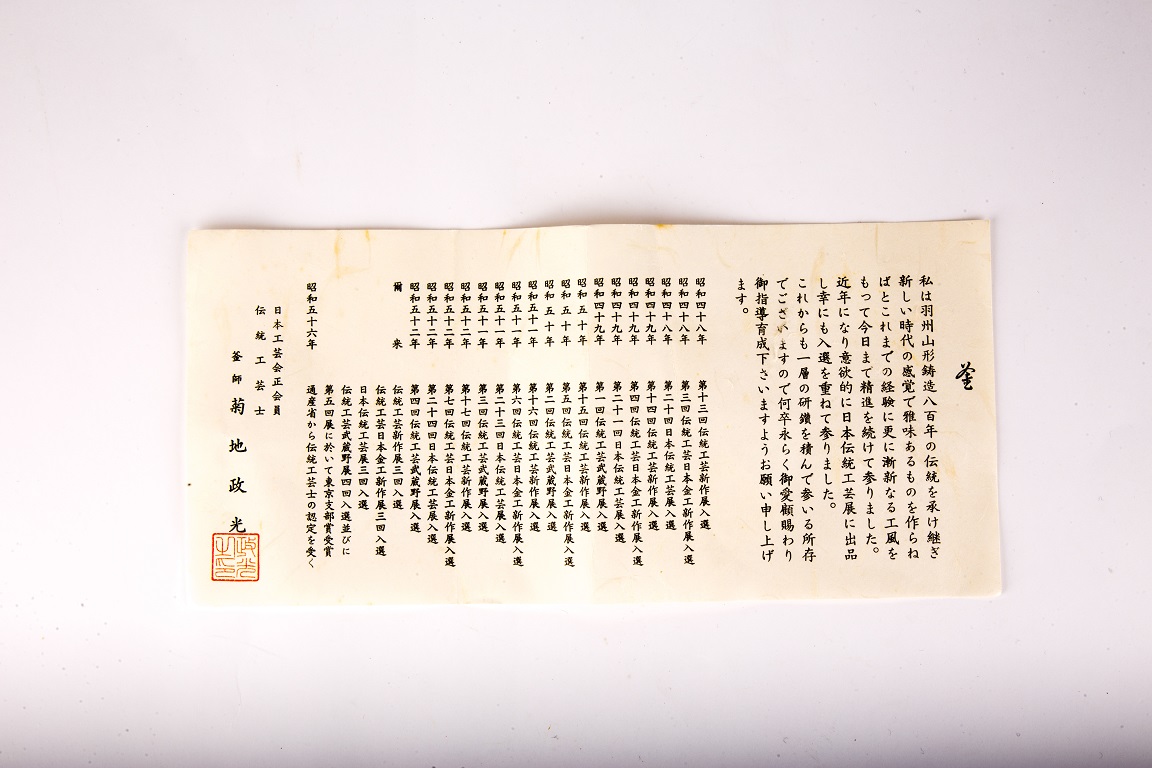 釜
私は羽州山形鋳造八百年の伝統を承け継ぎ
新しい時代の感覚で雅味あるものを作らね
ばとこれまでの経験に更に漸新なる工風を
もって今日まで精進を続けて参りました。
近年になり意欲的に日本伝統工芸展に出品
し幸にも入選を重ねて参りました。
これからも一層の研鑽を積んで参いる所存
でございますので何卒永らく御愛顧賜わり
御指導育成下さいますようお願い申し上げ
ます。
昭和四十八年 第十三回伝統工芸新作展入選
昭和四十八年 第三回伝統工芸日本金工新作展入選
昭和四十八年 第二十回日本伝統工芸展入選
昭和四十九年 第十四回伝統工芸新作展入選
昭和四十九年 第四回伝統工芸日本金工新作展入選
昭和四十九年 第二十一回日本伝統工芸展入選
昭和四十九年 第一回伝統工芸武蔵野展入選
昭和五十年 第十五回伝統工芸新作展入選
昭和五十年 第五回伝統工芸日本金工新作展入選
昭和五十年 第二回伝統工芸武蔵野展入選
昭和五十一年 第十六回伝統工芸新作展入選
昭和五十一年 第六回伝統工芸日本金工新作展入選
昭和五十一年 第二十三回日本伝統工芸展入選
昭和五十一年 第三回伝統工芸武蔵野展入選
昭和五十二年 第十七回伝統工芸新作展入選
昭和五十二年 第七回伝統工芸日本金工新作展入選
昭和五十二年 第二十四回日本伝統工芸展入選
昭和五十二年 第四回伝統工芸武蔵野展入選
爾来 伝統工芸新作展三回入選
伝統工芸日本金工新作展三回入選
日本伝統工芸展三回入選
伝統工芸武蔵野展四回入選並びに
第五回展に於いて東京支部賞受賞
昭和五十六年 通産省から伝統工芸士の認定を受く
日本工芸会正会員
伝統工芸士
釜師 菊地政光
政光之印